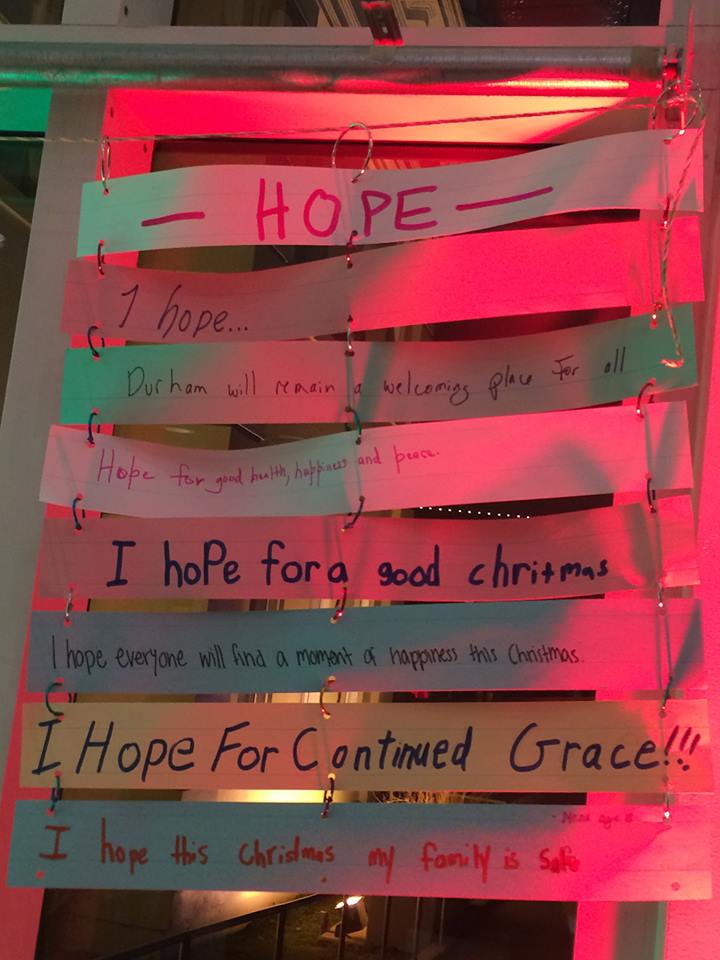 — HOPE —
I hope...
Durham will remain a welcoming place for all
Hope for good health, happiness and peace.
I hoPe for a good chritmas
I hope everyone will find a moment of happiness this Christmas.
I HOPe FOr Continued Grace!!!
I hope this Christmas my family is safe
age 8